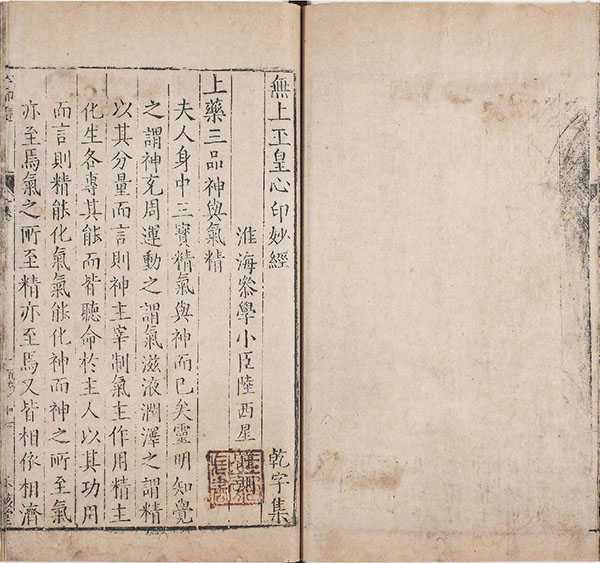 無上玉皇心印妙經 乾字集
淮海叅學小臣陸西星
上藥三品神與氣精
夫人身中三寳精氣與神而已矣靈明知覺
之謂神充周運動之謂氣滋液潤澤之謂精
以其分量而言則神主宰制氣主作用精主
化生各專其能而皆聽命於主人以其功用
而言則精能化氣氣能化神而神之所至氣
亦至焉氣之所至精亦至焉又皆相依相濟